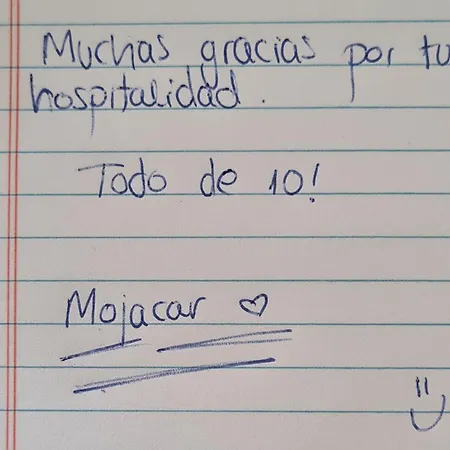 Muchas gracias por tu
hospitalidad.
Todo de 10!
Mojacar ♡